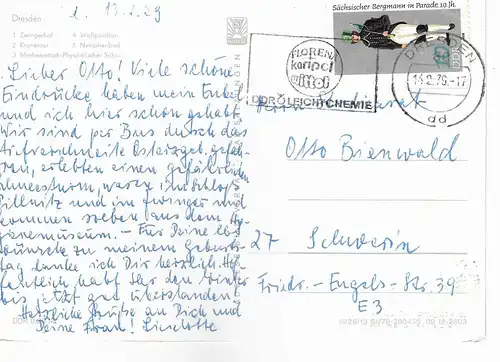 1. 13.2.79
Dresden
1 Zwingerhof 4 Wallpavillon
2 Kronentor 5 Nymphenbad
3 Mathematisch-Physikalischer Salon
Lieber Otto! Viele schöne
Eindrücke haben mein Enkel
und ich hier schon gehabt.
Wir sind per Bus durch das
tiefverschneite Osterzgeb. gefah-
ren, erlebten einen gefährlichen
Schneesturm, waren in Schloß
Pillnitz und im Zwinger und
kommen soeben aus dem Hy-
gienemuseum. - Für Deine
wünsche zu meinem Geburts-
tag danke ich Dir herzlich. Hof-
fentlich habt Ihr den Winter
bis jetzt gut überstanden.
Herzliche Grüße an Dich und
Deine Frau! Lieselotte
Sächsischer Bergmann in Parade 19. Jh.
DDR
FLORENA
karipol
wittol
DDR LEICHTCHEMIE
DRESDEN
14.2.79.-17
dd
Herrn
Otto Bienwald
27 Schwerin
Friedr.-Engels-Str. 39
E 3